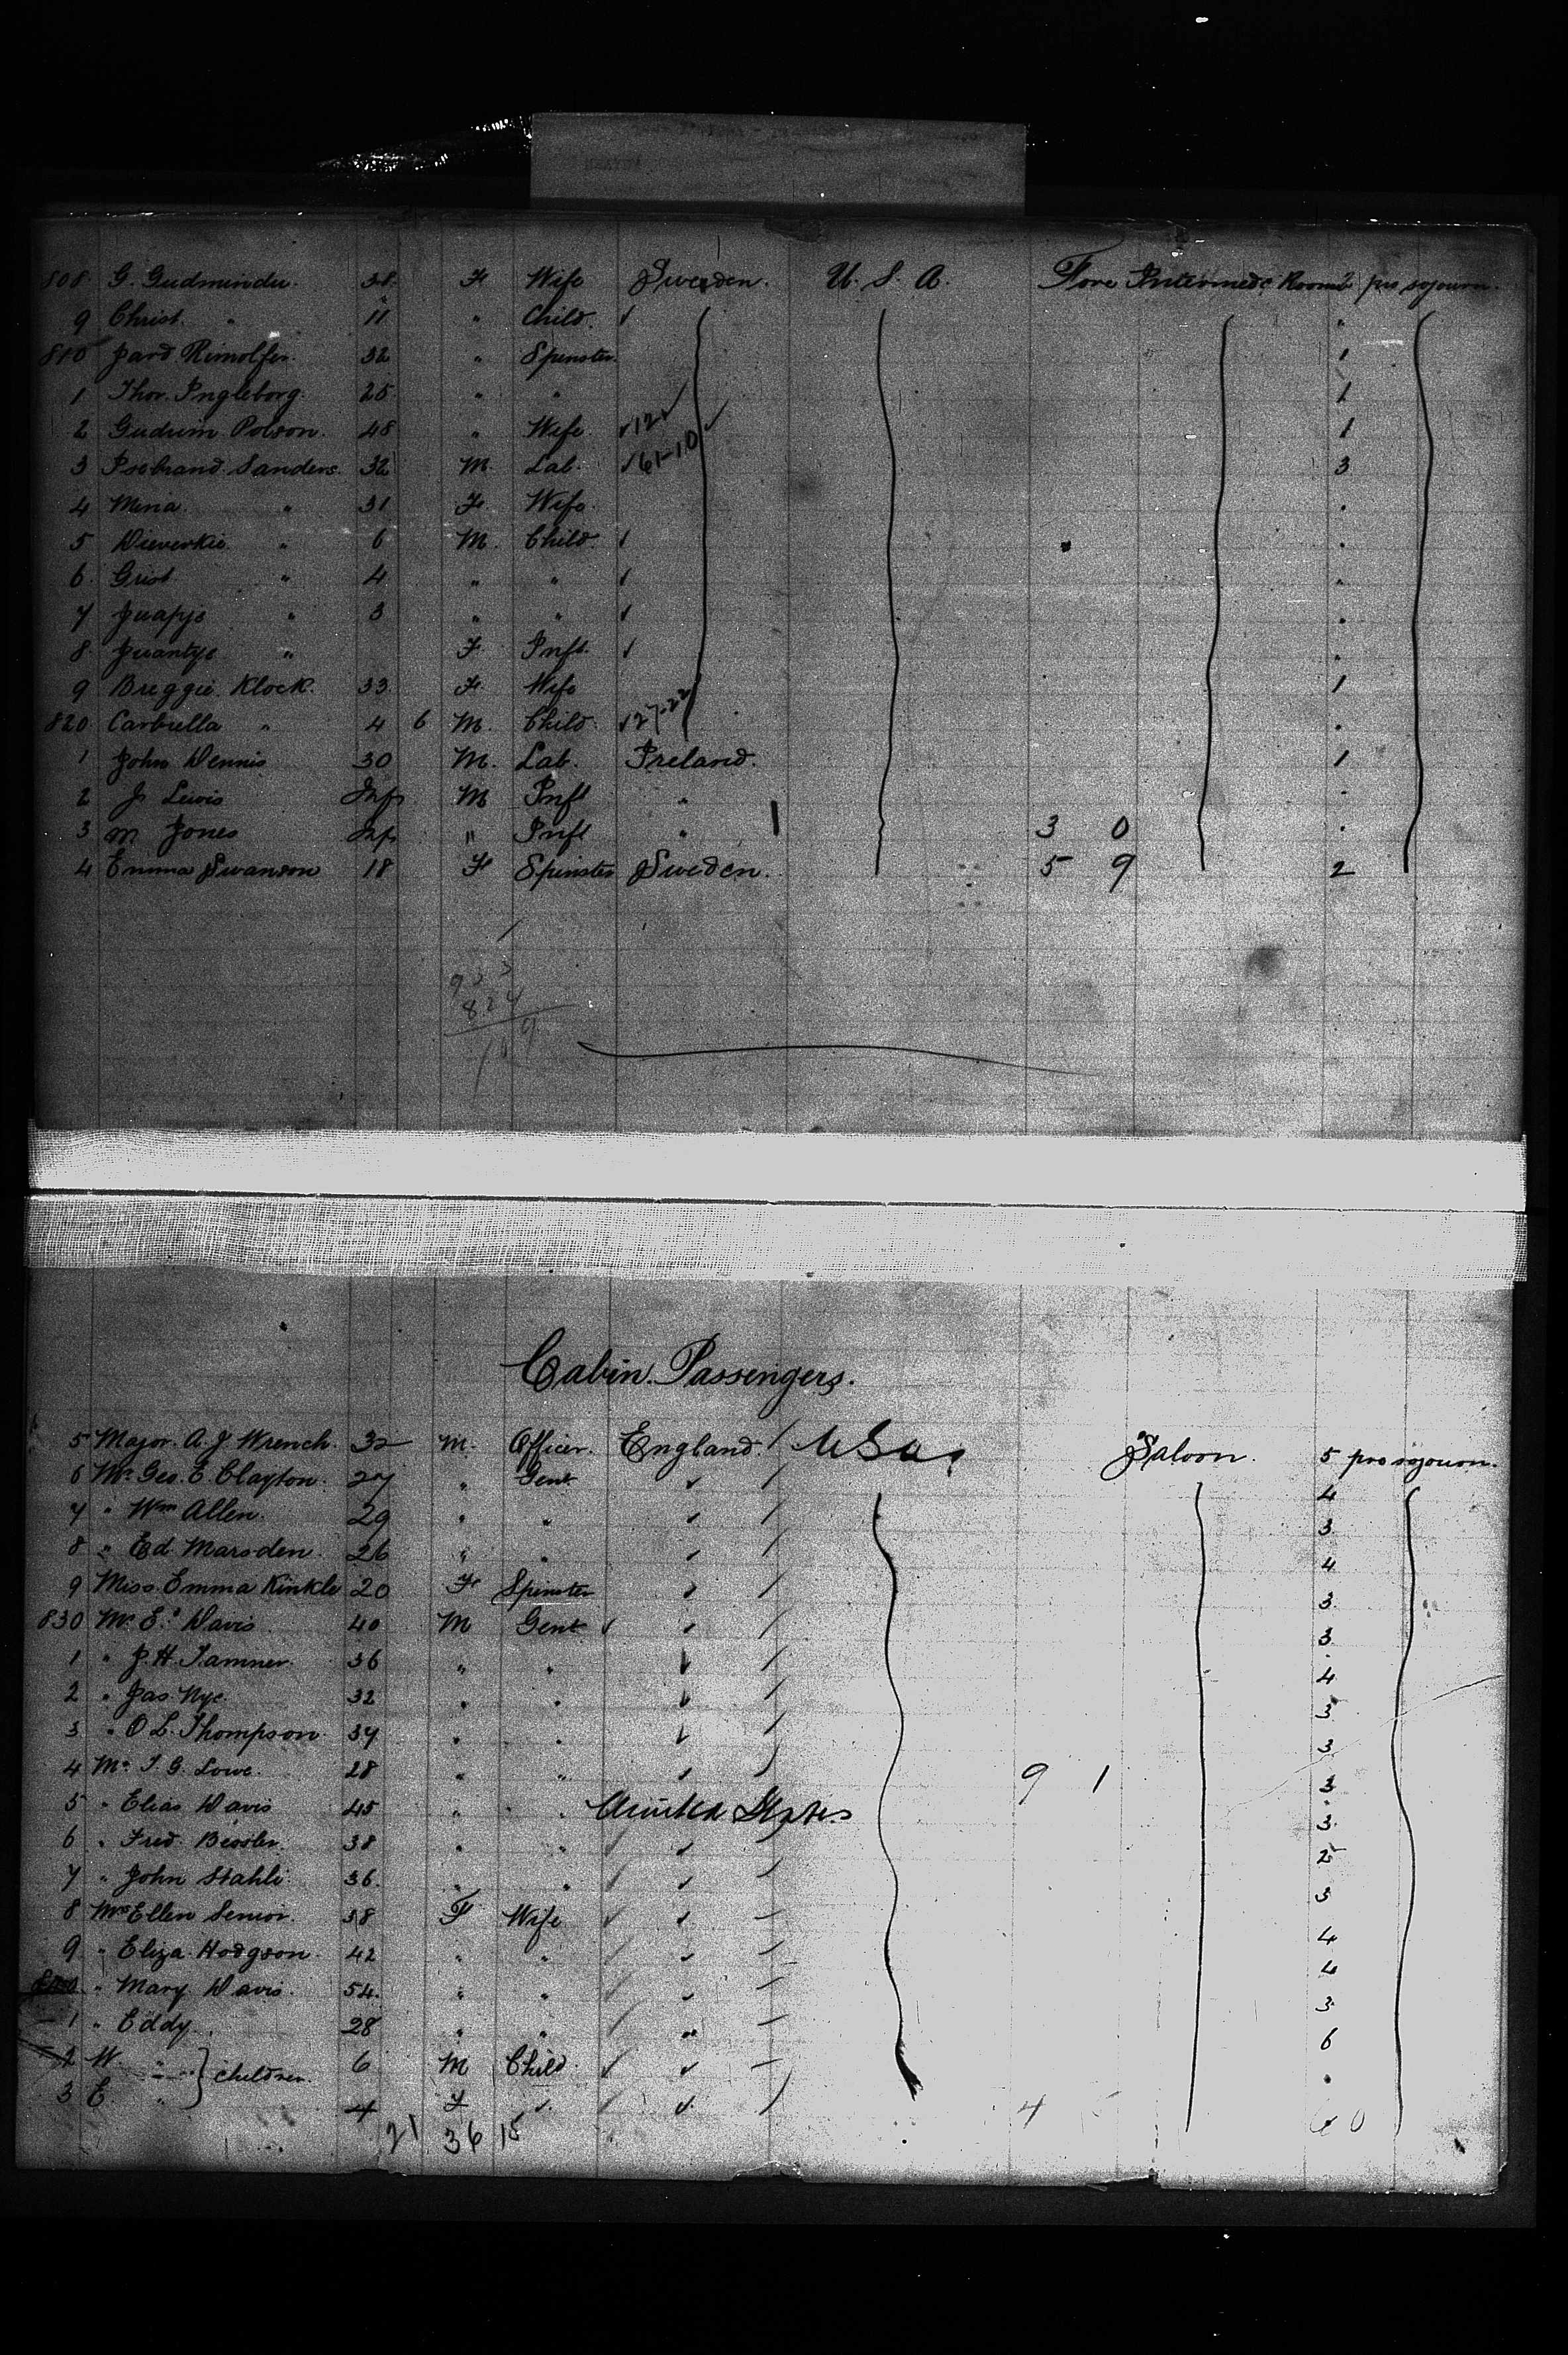 808. G. Gudmindu. 38. F Wife Sweden. U. S. A. Fore Intermede Rooms 2 pro sojourn.
9 Christ. " 11 " Child. ✓ "
810 Jard Rimolfer. 32 " Spinster. 1
1 Thor. Ingleborg. 25 " " 1
2 Gudrun Polson. 48 " Wife. ✓ 12 ✓ 1
3 Psobrand. Sanders. 32 M. Lab. ✓ 61-10 ✓ 3
4 Mina. " 31 F. Wife.
5 " 6 M. Child. ✓
6. Grist " 4 " " ✓ "
7 " 3 " " ✓
8. " F Inft. ✓ "
9 Breggie. Klock. 33. F. Wife 1
820 Carbrella " 4 6 M. Child. ✓ 27-22
1 John Dennis 30 M. Lab. Ireland. 1
2 J Lewis Inf. M Inft "
3 M Jones Inf. " Inft " 3 0
4 Emma Swanson 18 F Spinster Sweden. 5 9 2
933
824
109
Cabin. Passengers.
5 Major. A. J. Wrench. 32 M. Officer. England. / USA, Saloon. 5 pro sojourn.
6 Mr. Geo. E. Clayton. 27 " Gent ✓ / 4
7 " Wm Allen. 29 " " ✓ / 3
8 " Ed. Marsden. 26 " " ✓ / 4
9 Miss. Emma Kinkle 20 F Spinster ✓ / 3.
830 Mr. E. Davis 40 M Gent ✓ ✓ / 3.
1 " J. H. Tamner. 36 " " ✓ / 4
2 " Jas. Nye. 32 " " ✓ / 3
3 " O L. Thompson. 34 " " ✓ / 3
4 Mr. T. G. Lowe. 28 " " ✓ / 9 1 3
5 " Elias Davis 45 " " United States 3.
6 " Fred. Bessler. 38 " " / ✓ / 2
7 " John Stahli 36. " " / ✓ / 3
8 Mrs Ellen Senior. 38 F Wife ✓ ✓ - 4
9 " Eliza. Hodgson. 42 " " / ✓ - 4
840 " Mary Davis. 54. " " / ✓ - 3
1 " Eddy. 28 " " / " - 6
2 W. " } children. 6 M Child. ✓ ✓ -
3 E. " 4 F ✓ / ✓ / 4 0
21 36 15